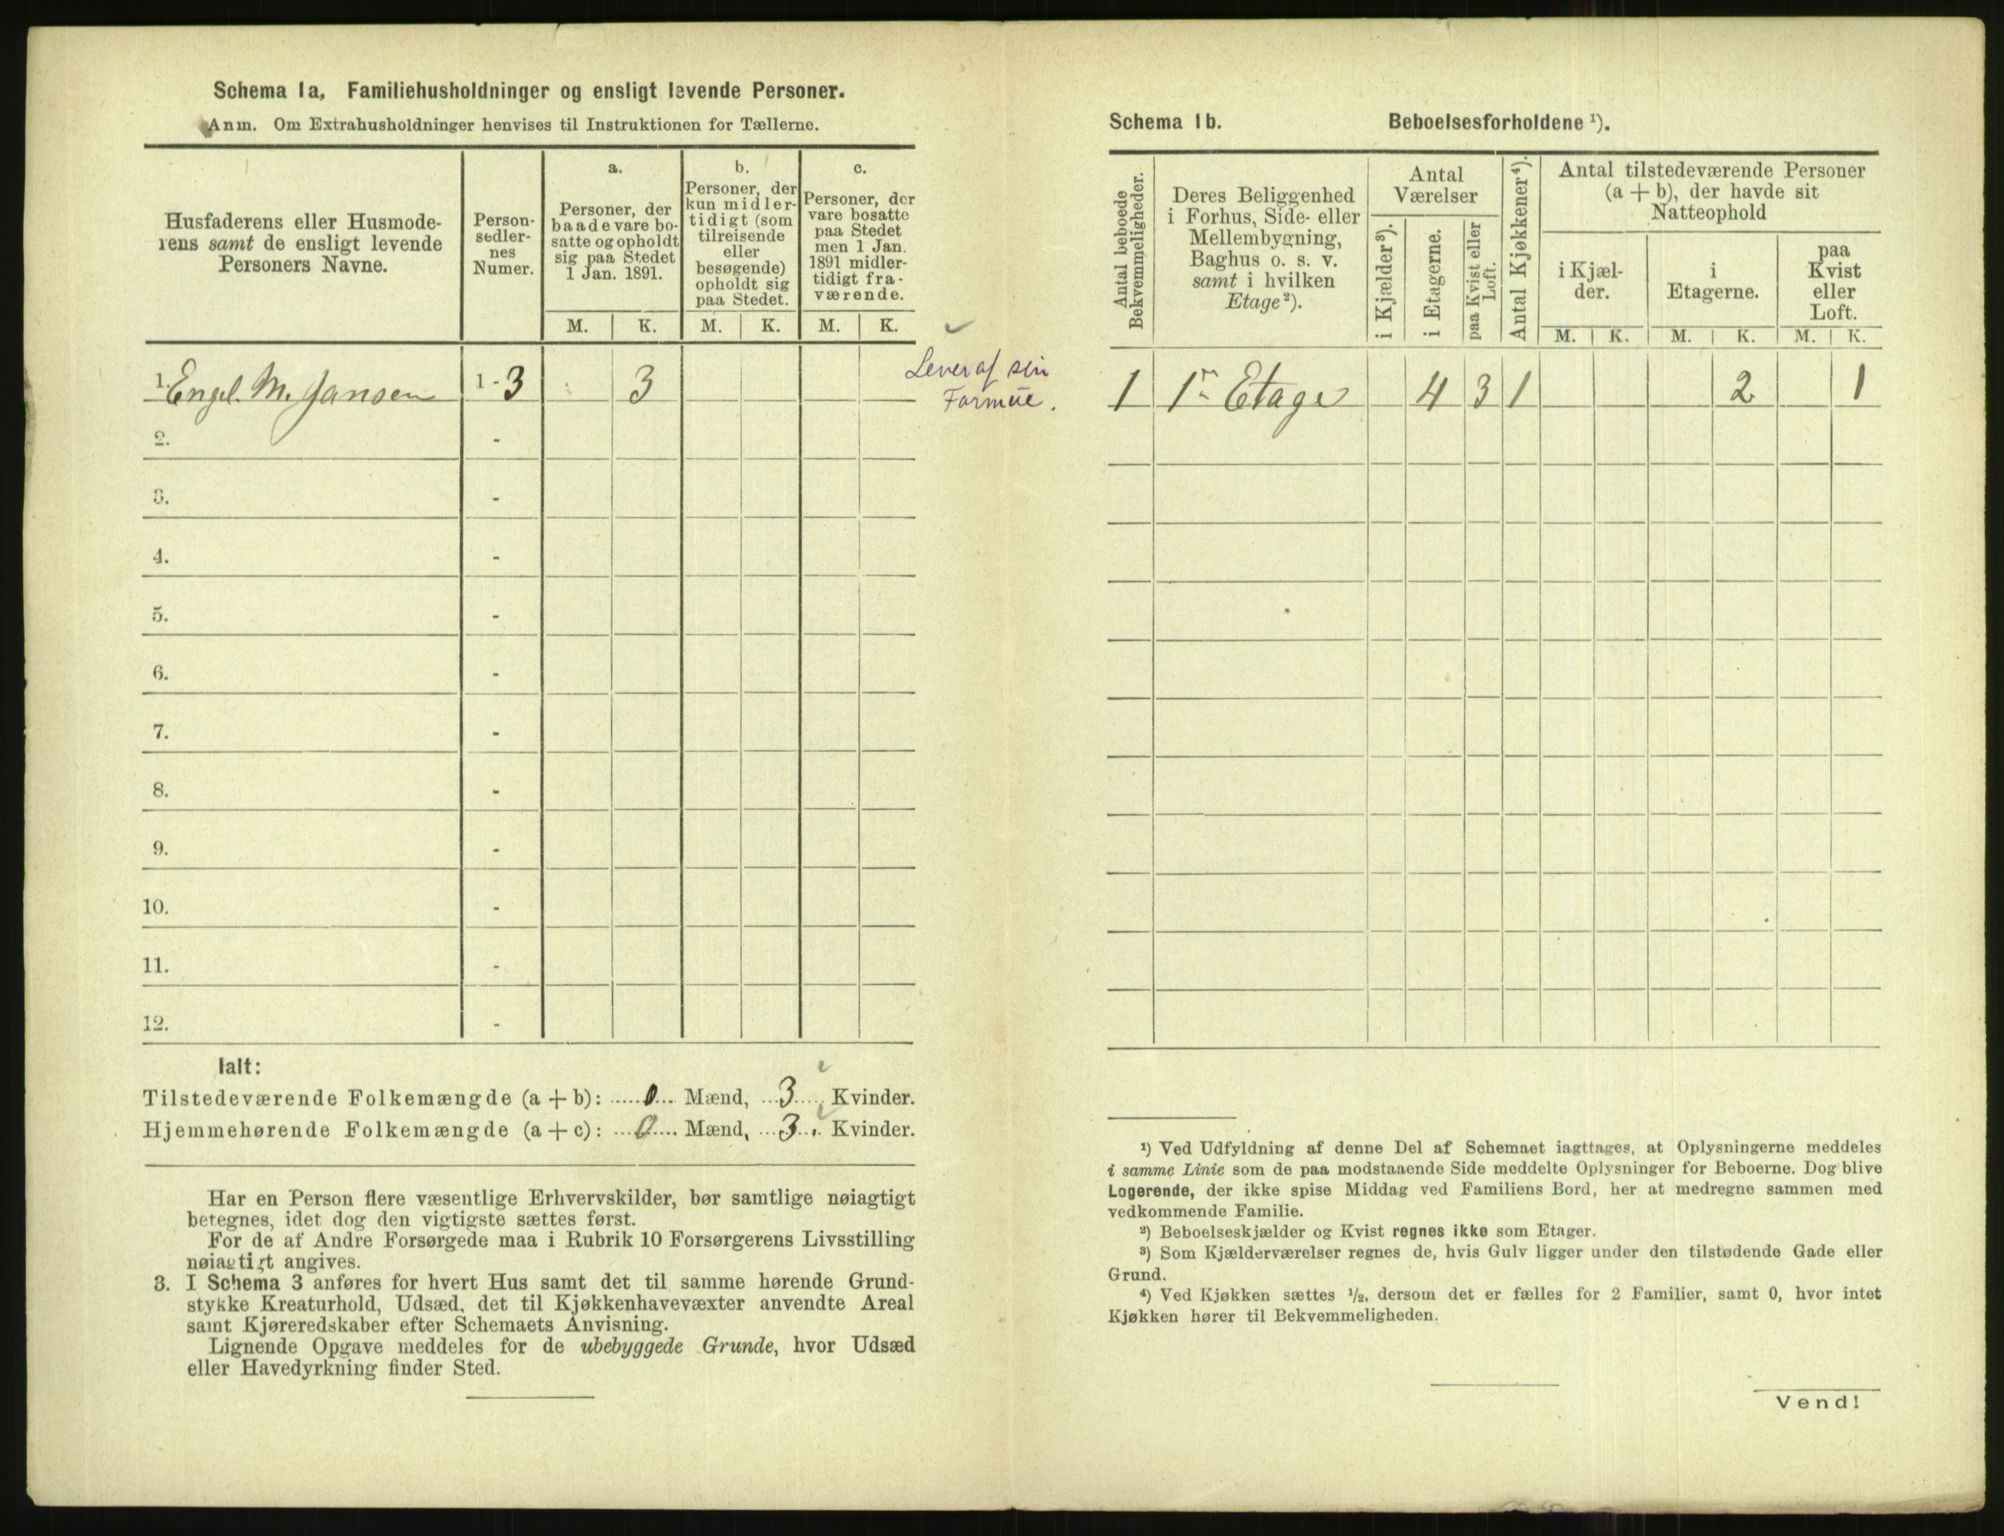 Schema 1a, Familiehusholdninger og ensligt levende Personer.
Anm. Om Extrahusholdninger henvises til Instruktionen for Tællerne.
Husfaderens eller Husmode-
rens samt de ensligt levende
Personers Navne.
Person-
sedler-
nes
Numer.
a.
Personer, der
baade vare bo-
satte og opholdt
sig paa Stedet
1 Jan. 1891.
b.
Personer, der
kun midler-
tidigt (som
tilreisende
eller
besøgende)
opholdt sig
paa Stedet.
c.
Personer, der
vare bosatte
paa Stedet
men 1 Jan.
1891 midler-
tidigt fra-
værende.
M. K. M. K. M. K.
1. Engel M. Jansen 1 - 3 3
Lever af sin
Formue.
2. -
3. -
4. -
5. -
6. -
7. -
8. -
9. -
10. -
11. -
12. -
Ialt:
Tilstedeværende Folkemængde (a + b): 0 Mænd, 3 Kvinder.
Hjemmehørende Folkemængde (a + c): 0 Mænd, 3 Kvinder.
Har en Person flere væsentlige Erhvervskilder, bør samtlige nøiagtigt
betegnes, idet dog den vigtigste sættes først.
For de af Andre Forsørgede maa i Rubrik 10 Forsørgerens Livsstilling
nøiagtigt angives.
3. I Schema 3 anføres for hvert Hus samt det til samme hørende Grund-
stykke Kreaturhold, Udsæd, det til Kjøkkenhavevæxter anvendte Areal
samt Kjøreredskaber efter Schemaets Anvisning.
Lignende Opgave meddeles for de ubebyggede Grunde, hvor Udsæd
eller Havedyrkning finder Sted.
Schema 1b. Beboelsesforholdene ¹).
Antal beboede
Bekvemmeligheder.
Deres Beliggenhed
i Forhus, Side- eller
Mellembygning,
Baghus o. s. v.
samt i hvilken
Etage²).
Antal
Værelser
i Kjælder³).
i Etagerne.
paa Kvist eller
Loft.
Antal Kjøkkener⁴).
Antal tilstedeværende Personer
(a + b), der havde sit
Natteophold
i Kjæl-
der.
i
Etagerne.
paa
Kvist
eller
Loft.
M. K. M. K. M. K.
1 1ⁿ Etage 4 3 1 2 1
¹) Ved Udfyldning af denne Del af Schemaet iagttages, at Oplysningerne meddeles
i samme Linie som de paa modstaaende Side meddelte Oplysninger for Beboerne. Dog blive
Logerende, der ikke spise Middag ved Familiens Bord, her at medregne sammen med
vedkommende Familie.
²) Beboelseskjælder og Kvist regnes ikke som Etager.
³) Som Kjælderværelser regnes de, hvis Gulv ligger under den tilstødende Gade eller
Grund.
⁴) Ved Kjøkken sættes ½, dersom det er fælles for 2 Familier, samt 0, hvor intet
Kjøkken hører til Bekvemmeligheden.
Vend!